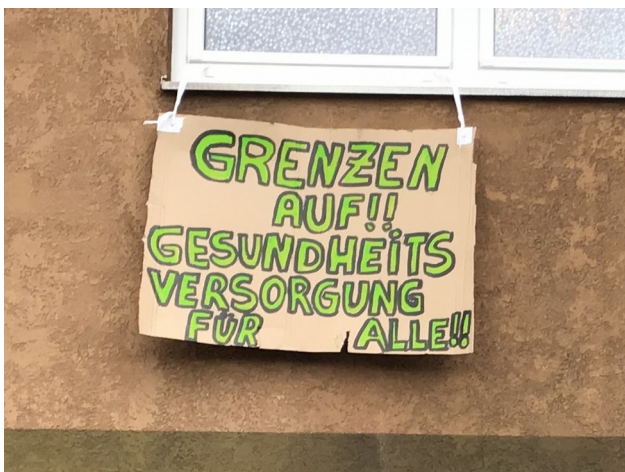 GRENZEN
AUF!!
GESUNDHEiTS
VERSORGUNG
FÜR ALLE!!